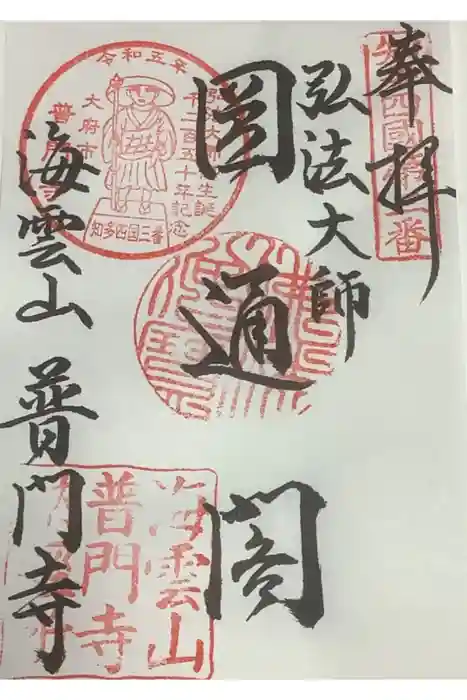 奉拝
弘法大師
圓通閣
海雲山 普門寺
令和五年
弘法大師
生誕
千二百五十年記念
大府市
普門寺
知多四国三番
海雲山
普門寺